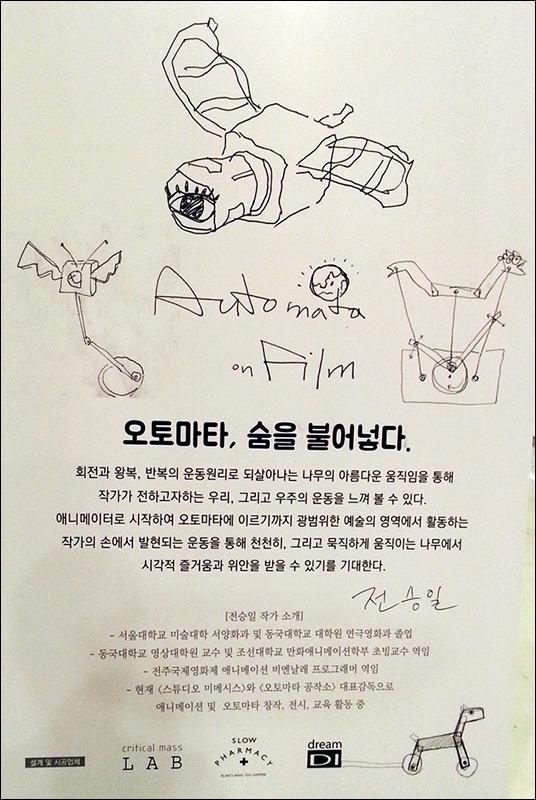 Automata
on Film
오토마타, 숨을 불어넣다.
회전과 왕복, 반복의 운동원리로 되살아나는 나무의 아름다운 움직임을 통해
작가가 전하고자하는 우리, 그리고 우주의 운동을 느껴 볼 수 있다.
애니메이터로 시작하여 오토마타에 이르기까지 광범위한 예술의 영역에서 활동하는
작가의 손에서 발현되는 운동을 통해 천천히, 그리고 묵직하게 움직이는 나무에서
시각적 즐거움과 위안을 받을 수 있기를 기대한다.
전승일
[전승일 작가 소개]
- 서울대학교 미술대학 서양화과 및 동국대학교 대학원 연극영화과 졸업
- 동국대학교 영상대학원 교수 및 조선대학교 만화애니메이션학부 초빙교수 역임
- 전주국제영화제 애니메이션 비엔날레 프로그래머 역임
- 현재 <스튜디오 미메시스>와 <오토마타 공작소> 대표감독으로
애니메이션 및 오토마타 창작, 전시, 교육 활동 중
설계 및 시공업체
critical mass
LAB
SLOW
PHARMACY
PLANTS MAKE YOU HAPPIER
dream
DI